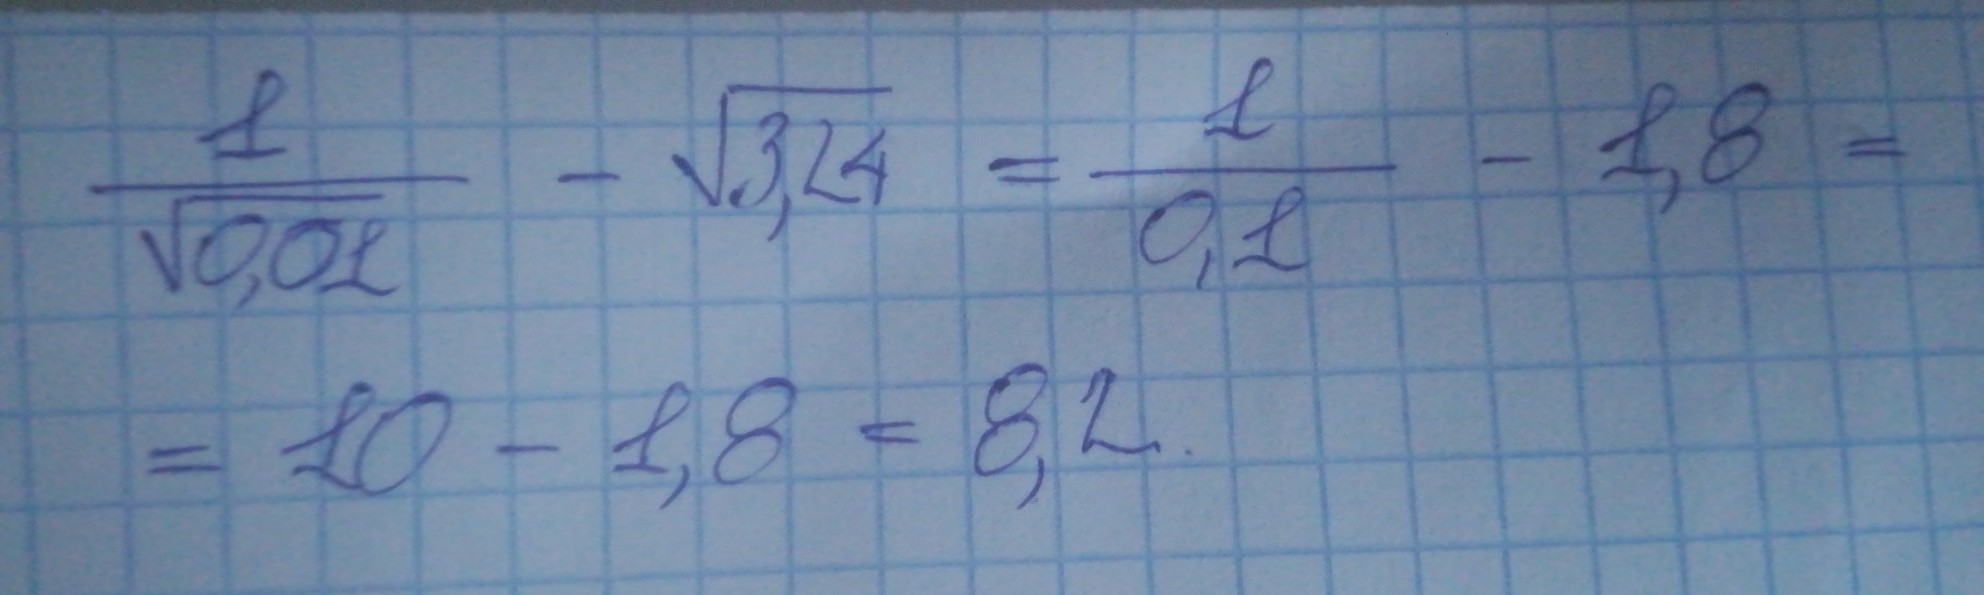 1/√0,01 - √3,24 = 1/0,1 - 1,8 =
= 10 - 1,8 = 8,2.